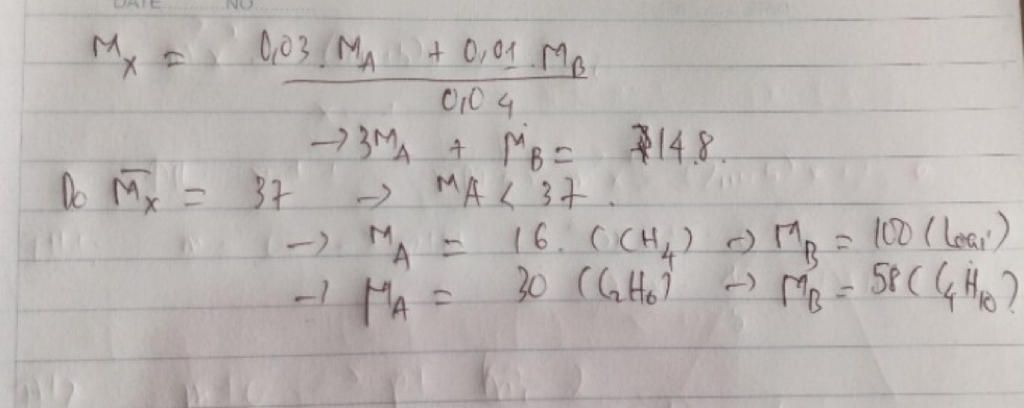 DATE NO
M_X = 0,03.M_A + 0,01.M_B
0,04
→ 3M_A + M_B = 148.
Do M̅_X = 37 → M_A < 37.
→ M_A = 16. (CH_4) → M_B = 100 (loại)
→ M_A = 30 (C_2H_6) → M_B = 58 (C_4H_10)